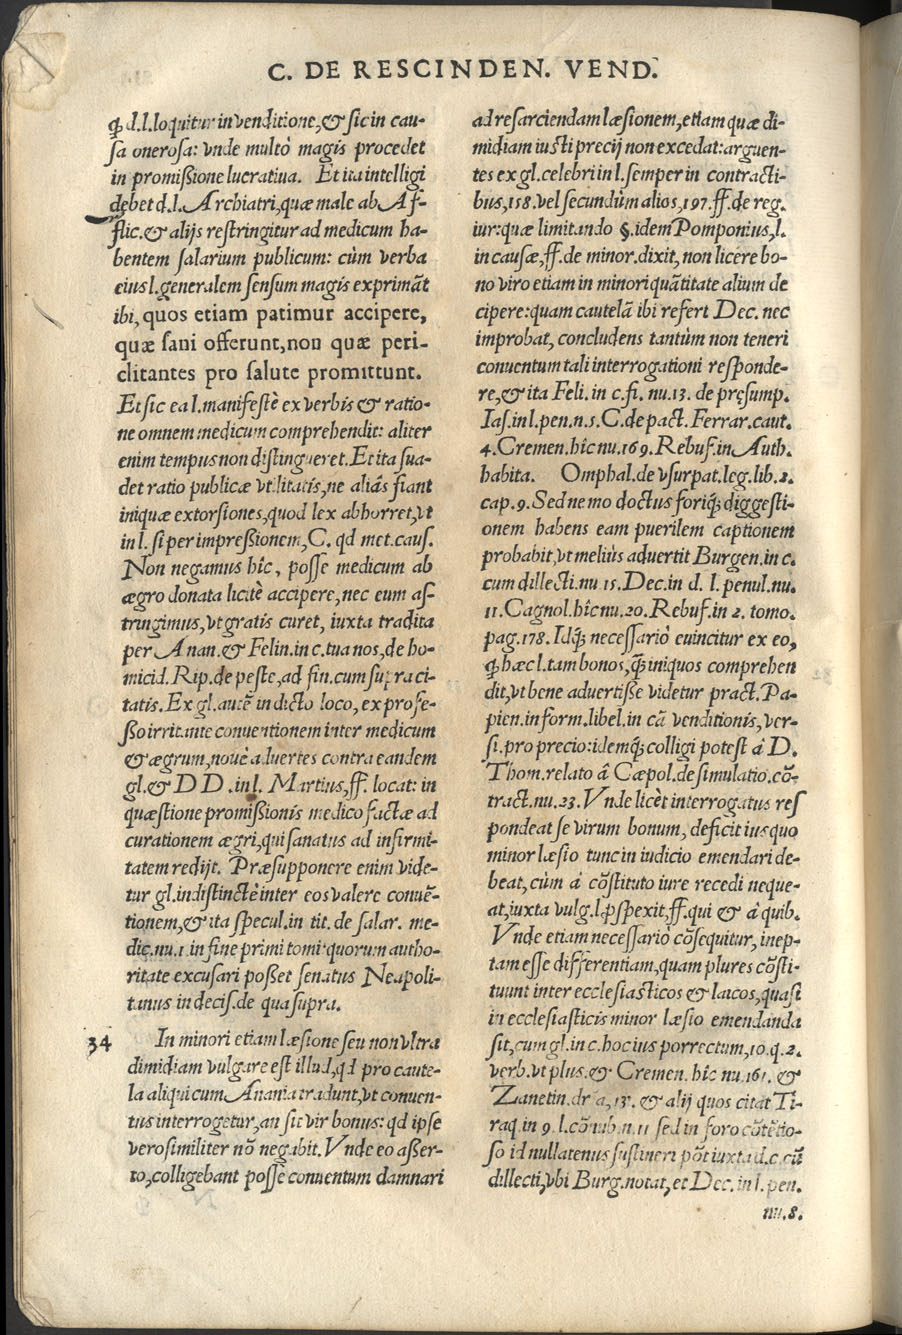 C. DE RESCINDEN. VEND.
ꝙ d.l.loquitur in venditione,& sic in cau-
sa onerosa: vnde multò magis procedet
in promißione lucratiua. Et ita intelligi
debet d.l. Archiatri,quæ male ab Af-
flic.& alijs restringitur ad medicum ha-
bentem salarium publicum: cùm verba
eius l.generalem sensum magis exprimāt
ibi, quos etiam patimur accipere,
quæ sani offerunt,non quæ peri-
clitantes pro salute promittunt.
Et sic ea l.manifestè ex verbis & ratio-
ne omnem medicum comprehendit: aliter
enim tempus non distingueret.Et ita sua-
det ratio publicæ vtilitatis,ne aliâs fiant
iniquæ extorsiones,quod lex abhorret,vt
in l. si per impreßionem, C. qd met.caus.
Non negamus hîc, posse medicum ab
ægro donata licitè accipere,nec eum as-
tringimus,vt gratis curet, iuxta tradita
per Anan.& Felin.in c.tua nos,de ho-
micid.Rip.de peste,ad fin.cum supra ci-
tatis. Ex gl.autē in dicto loco, ex profe-
ßo irritante conuentionem inter medicum
& ægrum,nouè aduertes contra eandem
gl.& DD .in l. Martius,ff. locat: in
quæstione promißionis medico factæ ad
curationem ægri,qui sanatus ad infirmi-
tatem redijt. Præsupponere enim vide-
tur gl.indistinctè inter eos valere conuē-
tionem,& ita specul.in tit. de salar. me-
dic.nu.1 in fine primi tomi·quorum autho-
ritate excusari poßet senatus Neapoli-
tanus in decis.de qua supra.
34 In minori etiam læsione seu non vltra
dimidiam vulgare est illud,qd pro caute-
la aliqui cum Anania tradunt,vt conuen-
tus interrogetur,an sit vir bonus: qd ipse
verosimiliter nō negabit. Vnde eo aßer-
to,colligebant posse conuentum damnari
ad resarciendam læsionem,etiam quæ di-
midiam iusti precij non excedat: arguen-
tes ex gl.celebri in l.semper in contracti-
bus,158.vel secundùm alios,197.ff.de reg.
iur:quæ limitando §.idem Pomponius,l.
in causæ,ff.de minor.dixit,non licere bo-
no viro etiam in minori quātitate alium de
cipere:quam cautelā ibi refert Dec. nec
improbat, concludens tantùm non teneri
conuentum tali interrogationi responde-
re,& ita Feli. in c.fi. nu.13. de pręsump.
Ias.in l.pen.n.5.C.de pact. Ferrar.caut.
4.Cremen.hîc nu.169.Rebuf.in Auth.
habita. Omphal.de vsurpat.leg.lib.2.
cap.9.Sed nemo doctus foriꝗ; diggesti-
onem habens eam puerilem captionem
probabit,vt meliùs aduertit Burgen.in c.
cum dillecti.nu 15.Dec.in d. l. penul.nu.
11.Cagnol.hîc nu.20.Rebuf.in 2. tomo.
pag.178. Idꝗ; necessariò euincitur ex eo,
ꝙ hæc l.tam bonos,ꝗ̄ iniquos comprehen
dit,vt bene aduertiße videtur pract.Pa-
pien.in form.libel.in cā venditionis,ver-
si.pro precio:idemꝗ; colligi potest à D.
Thom.relato â Cæpol.de simulatio.cō-
tract.nu.23.Vnde licèt interrogatus res
pondeat se virum bonum, deficit ius quo
minor læsio tunc in iudicio emendari de-
beat, cùm à cōstituto iure recedi neque-
at,iuxta vulg.l.ꝓspexit,ff.qui & à quib.
Vnde etiam necessariò cōsequitur, inep-
tam esse differentiam,quam plures cōsti-
tuunt inter ecclesiasticos & laicos,quasi
in ecclesiasticis minor læsio emendanda
sit,cum gl.in c.hoc ius porrectum,10.q.2.
verb.vt plus.& Cremen. hîc nu.161. &
Zanetin.dr a, 13. & alij quos citat Ti-
raq.in 9.l.cōnub.n.11 sed in foro cōtētio-
so id nullatenus sustineri pōt iuxta d.c.cū
dillecti,vbi Burg.notat,et Dec. in l.pen.
nu.8.